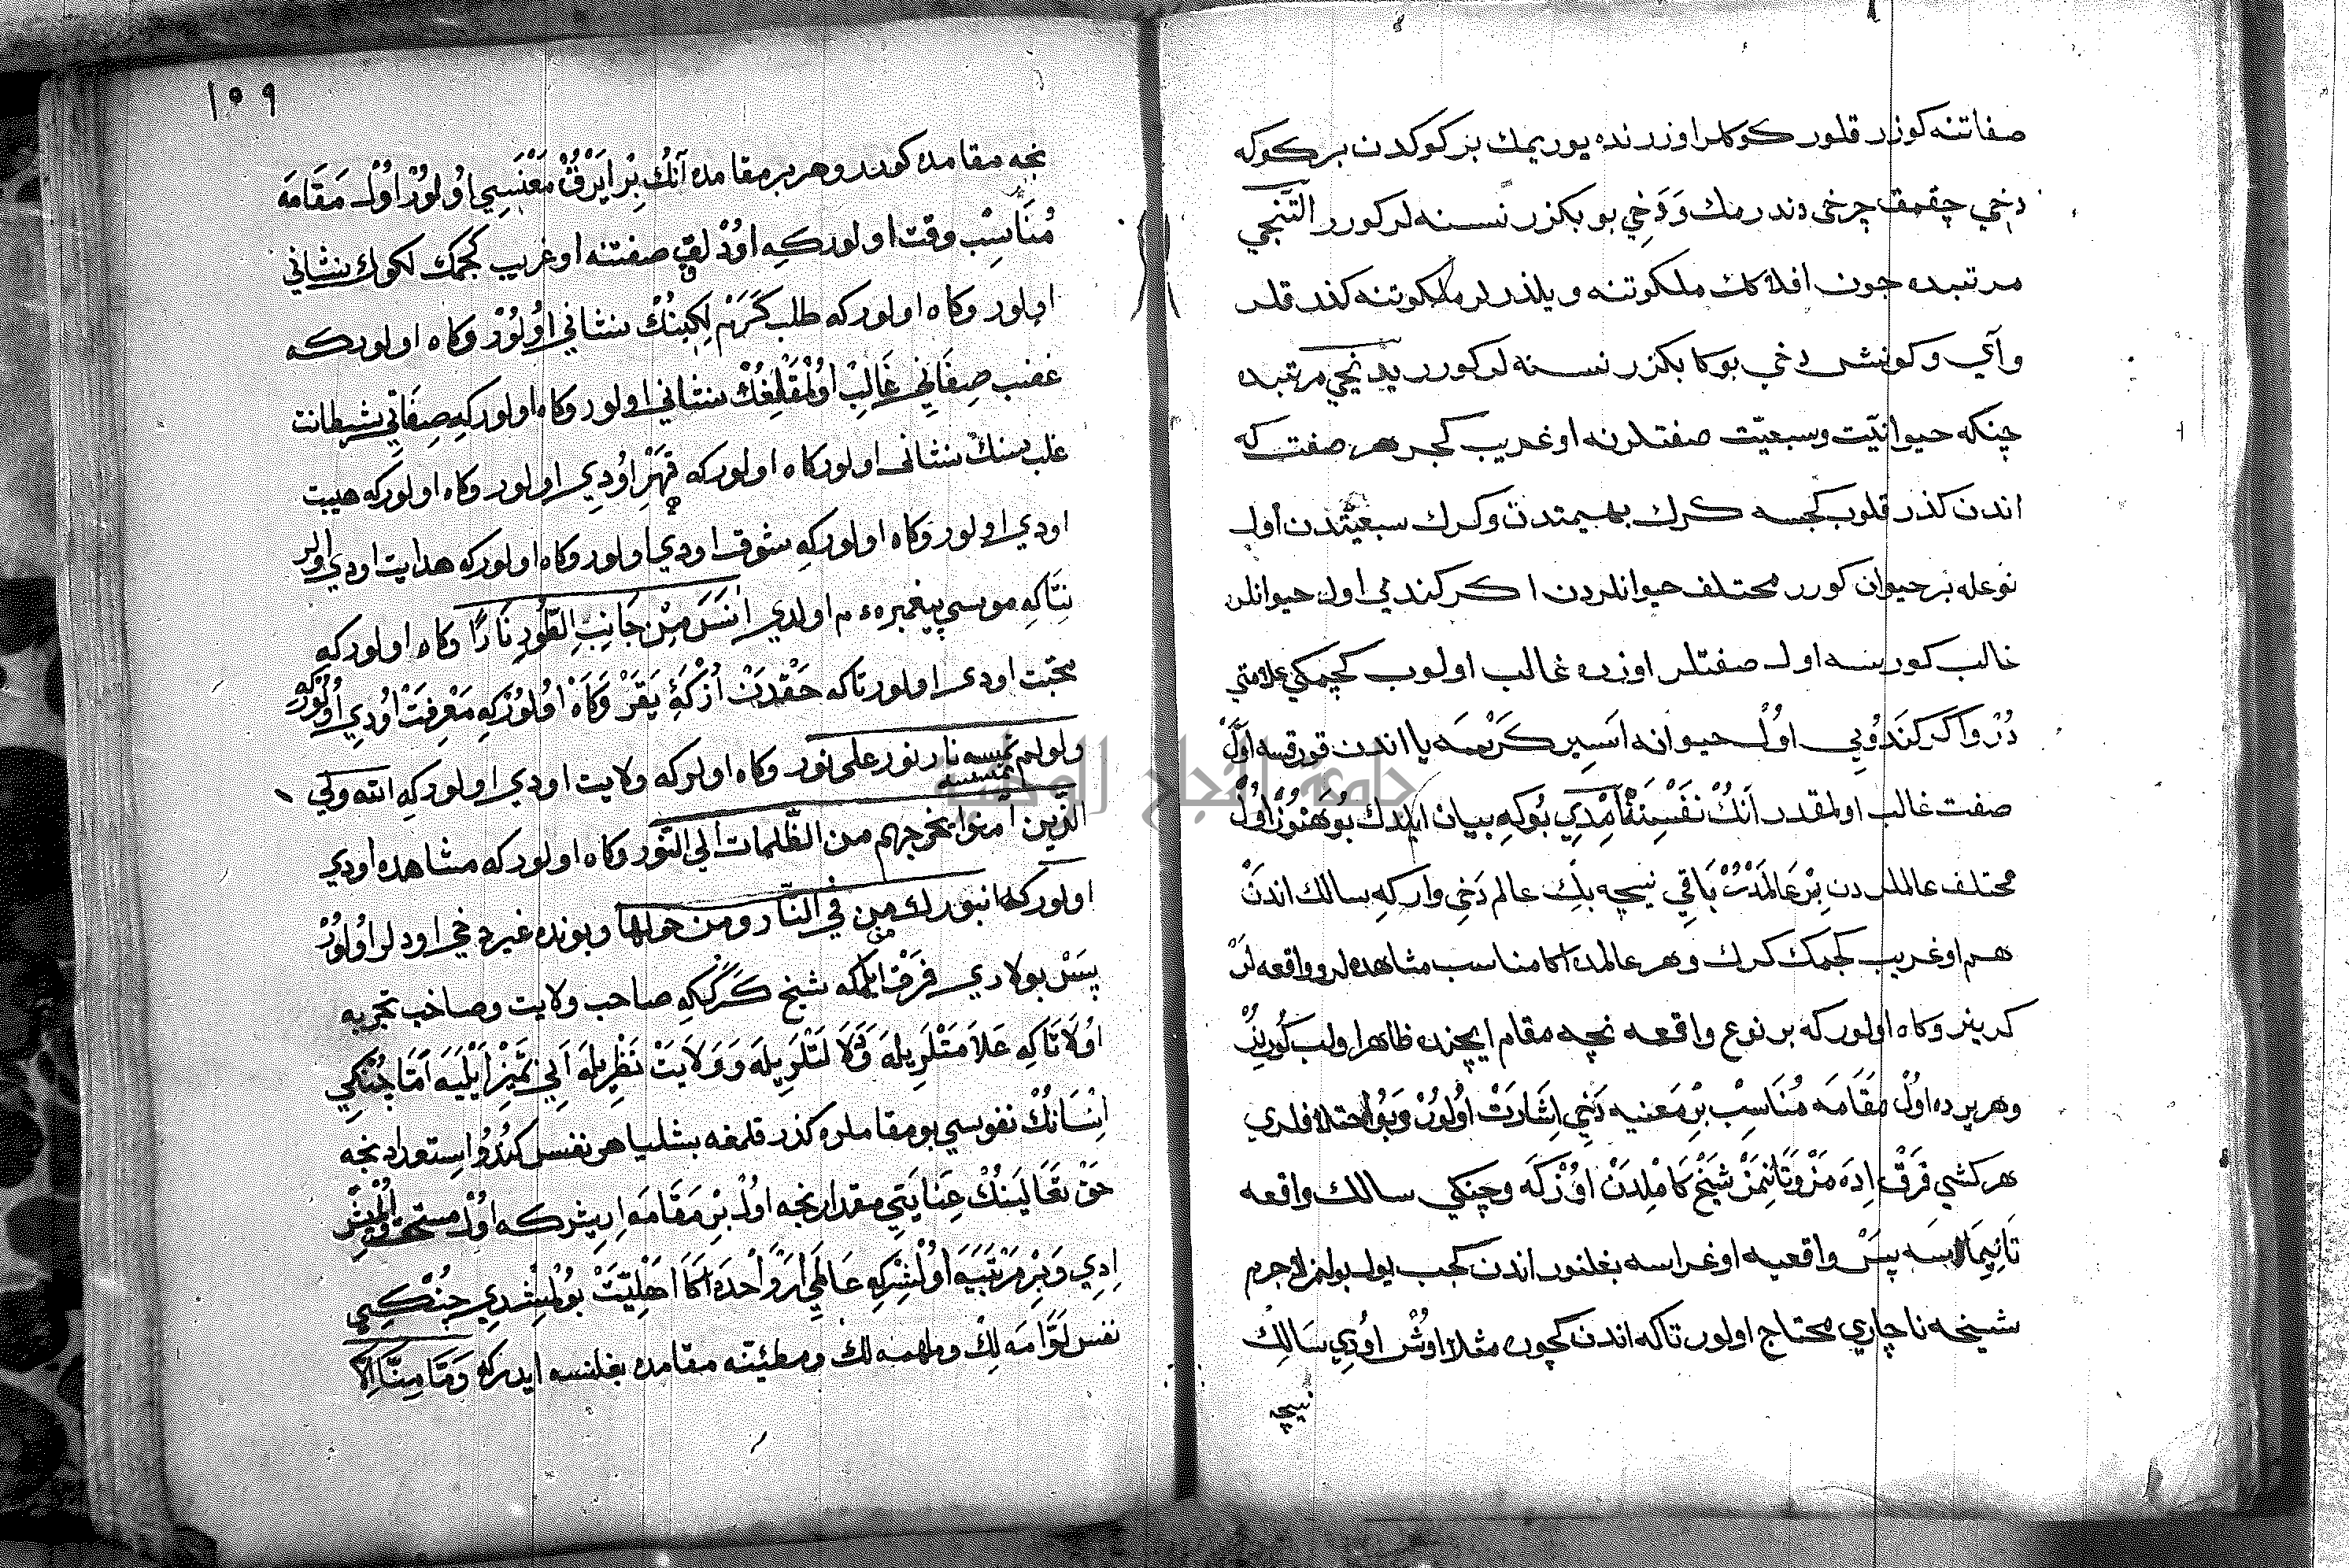 صفاتنه كوزر قلور كوكلر اوزرنده يوريمك بر كوكدن بر كوكه
دخي چقمق چرخى دندرمك وَدَخِي بو بكزر نسنه لر كورر التنجي
مرتبه ده چون افلاكك ملكوتنه و يلذزلر ملكوتنه كذر قلر
و آي و كونش دخي بوكا بكزر نسنه لر كورر يدنجي مرتبه ده
چنكه حيوانيّت و سبعيّت صفتلرنه اوغريب كجر هر صفت كه
اندن كذر قلوب كجسه كرك بهيمتدن و كرك سبعيتدن اول
نوعله بر حيوان كورر مختلف حيوانلردن اكر كندي اول حيوانلر
غالب كورسه اول صفتلر اوزره غالب اولوب كچمكي علامتي
دُرْ واكر كَندُويي اوُلْ حيوانه اَسِير كَرْمَسه يا اندن قورقسه اوَّلْ
صفت غالب اولمقدر اَنُكْ نَفْسِنَهْ اَمْدِي بُوكِه بيان ايلدك بُو هَنُوزْ اوُلْ
مختلف عالملردن بِرْ عَالَمدُرْ بَاقِي نيچه بيك عالم دَخِي وار كه سالك اندَنْ
هم اوغريب كجمك كرك وهر عالمده اكا مناسب مشاهده لر و واقعه لَرْ
كرينر وكاه اولور كه بر نوع واقعه نچه مقام ايچنده ظاهر اولب كُورِنُرْ
وهر برده اوُلْ مَقَامَه مُنَاسِبْ بِرْ مَعنيه دَخِي اِشَارَتْ اُولُورْ وَبُو اختلافلري
هر كشي فَرَقْ اِدَه مَزْ وتَانِيمَزْ شَيْخِ كَامْلِدَنْ اوُزْكَه وچنكي سالك واقعه
تَانِيمَاسَه پَسْ واقعيه اوغراسه بغلنور اندن كجب يول بولمز لاجرم
شيخه ناچاري محتاج اولور تاكه اندن كچون مثلا اوُشْ اوُدِي سَالِكْ
نيچه
١٥٩
نچه مقامده كورر وهر بر مقامده آنُكْ بِرْ اَيْرُقْ مَعْنَسِي اوُلُورْ اوُلْ مَقَامَه
مُنَاسِبْ وقت اولور كه اوُدْلقِ صفتنه اوغريب كجمك لكوك نشاني
اولور وكاه اولور كه طلب كَرَمْ لِكِينُكْ نشاني اوُلُورْ وكاه اولور كه
غضب صِفَاتِي غَالِبْ اوُلْمَقْلِغُكْ نشاني اولور وكاه اولور كه صِفَاتِي شيطانت
غلبه سنك نشانى اولور كاه اولور كه قَهْرْ اوُدِي اولور وكاه اولور كه هيبت
اودي اولور وكاه اولور كه شوق اودي اولور وكاه اولور كه هدايت اودي اولر
نِتَاكِه موسي پيغمبره ع م اولدي انَسَ مِنْ جَانِبِ الطُّورِ نَارًا وكاه اولور كه
محبّت اودى اولور تاكه حَقْدَنْ اُزْكَهْ يَقَرْ وَكَاهْ اوُلُورْكِه مَعْرِفَتْ اُودِي اوُلُورْكِه
ولو لم تمسسه نار نور على نور وكاه اولر كه ولايت اودي اولور كه الله ولي
الّذين آمنوا يخرجهم من الظّلمات الي النّور وكاه اولور كه مشاهده اودي
اولور كه ان بورك من في النّار ومن حولها وبونده غير دخي اودلر اوُلُورْ
پَسْ بولاري فَرَقْ ايلمكه شيخ كَرَكْكِه صاحب ولايت وصاحب تجربه
اوُلَا تَاكِه عَلَامَتْلَرِيلَه وَدَلَالَتْلَرِيلَه وَوَلَايَتْ نَظْرِيلَه اَنِي تَمْيِزْ اَيْلَيَه اَمَّا چُنْكِي
اِنْسَانُكْ نفوسي بو مقاملره كذر قلمغه بشليا هر نفس كندُو استعدادنجه
حَقْ تَعَالَينُكْ عِنَايَتِي مقدارنجه اوُلْ بِرْ مَقَامَه اِرِيشر كه اوُلْ مستحق اوُلْمِشْ
اِدِي وَبِرْ مَرْتَبَيَه اوُلْشِرْكِه عَالَمِي اَرْوَاحْدَه اَكَا اَهْلِيّتْ بُولْمِشْدِي چُنْكِي
نفس لَوَّامَه لِكْ وملهمه لك ومطمئنّه مقامده بغلنسه ايدر كه وَمَا مِنَّا اِلَّا